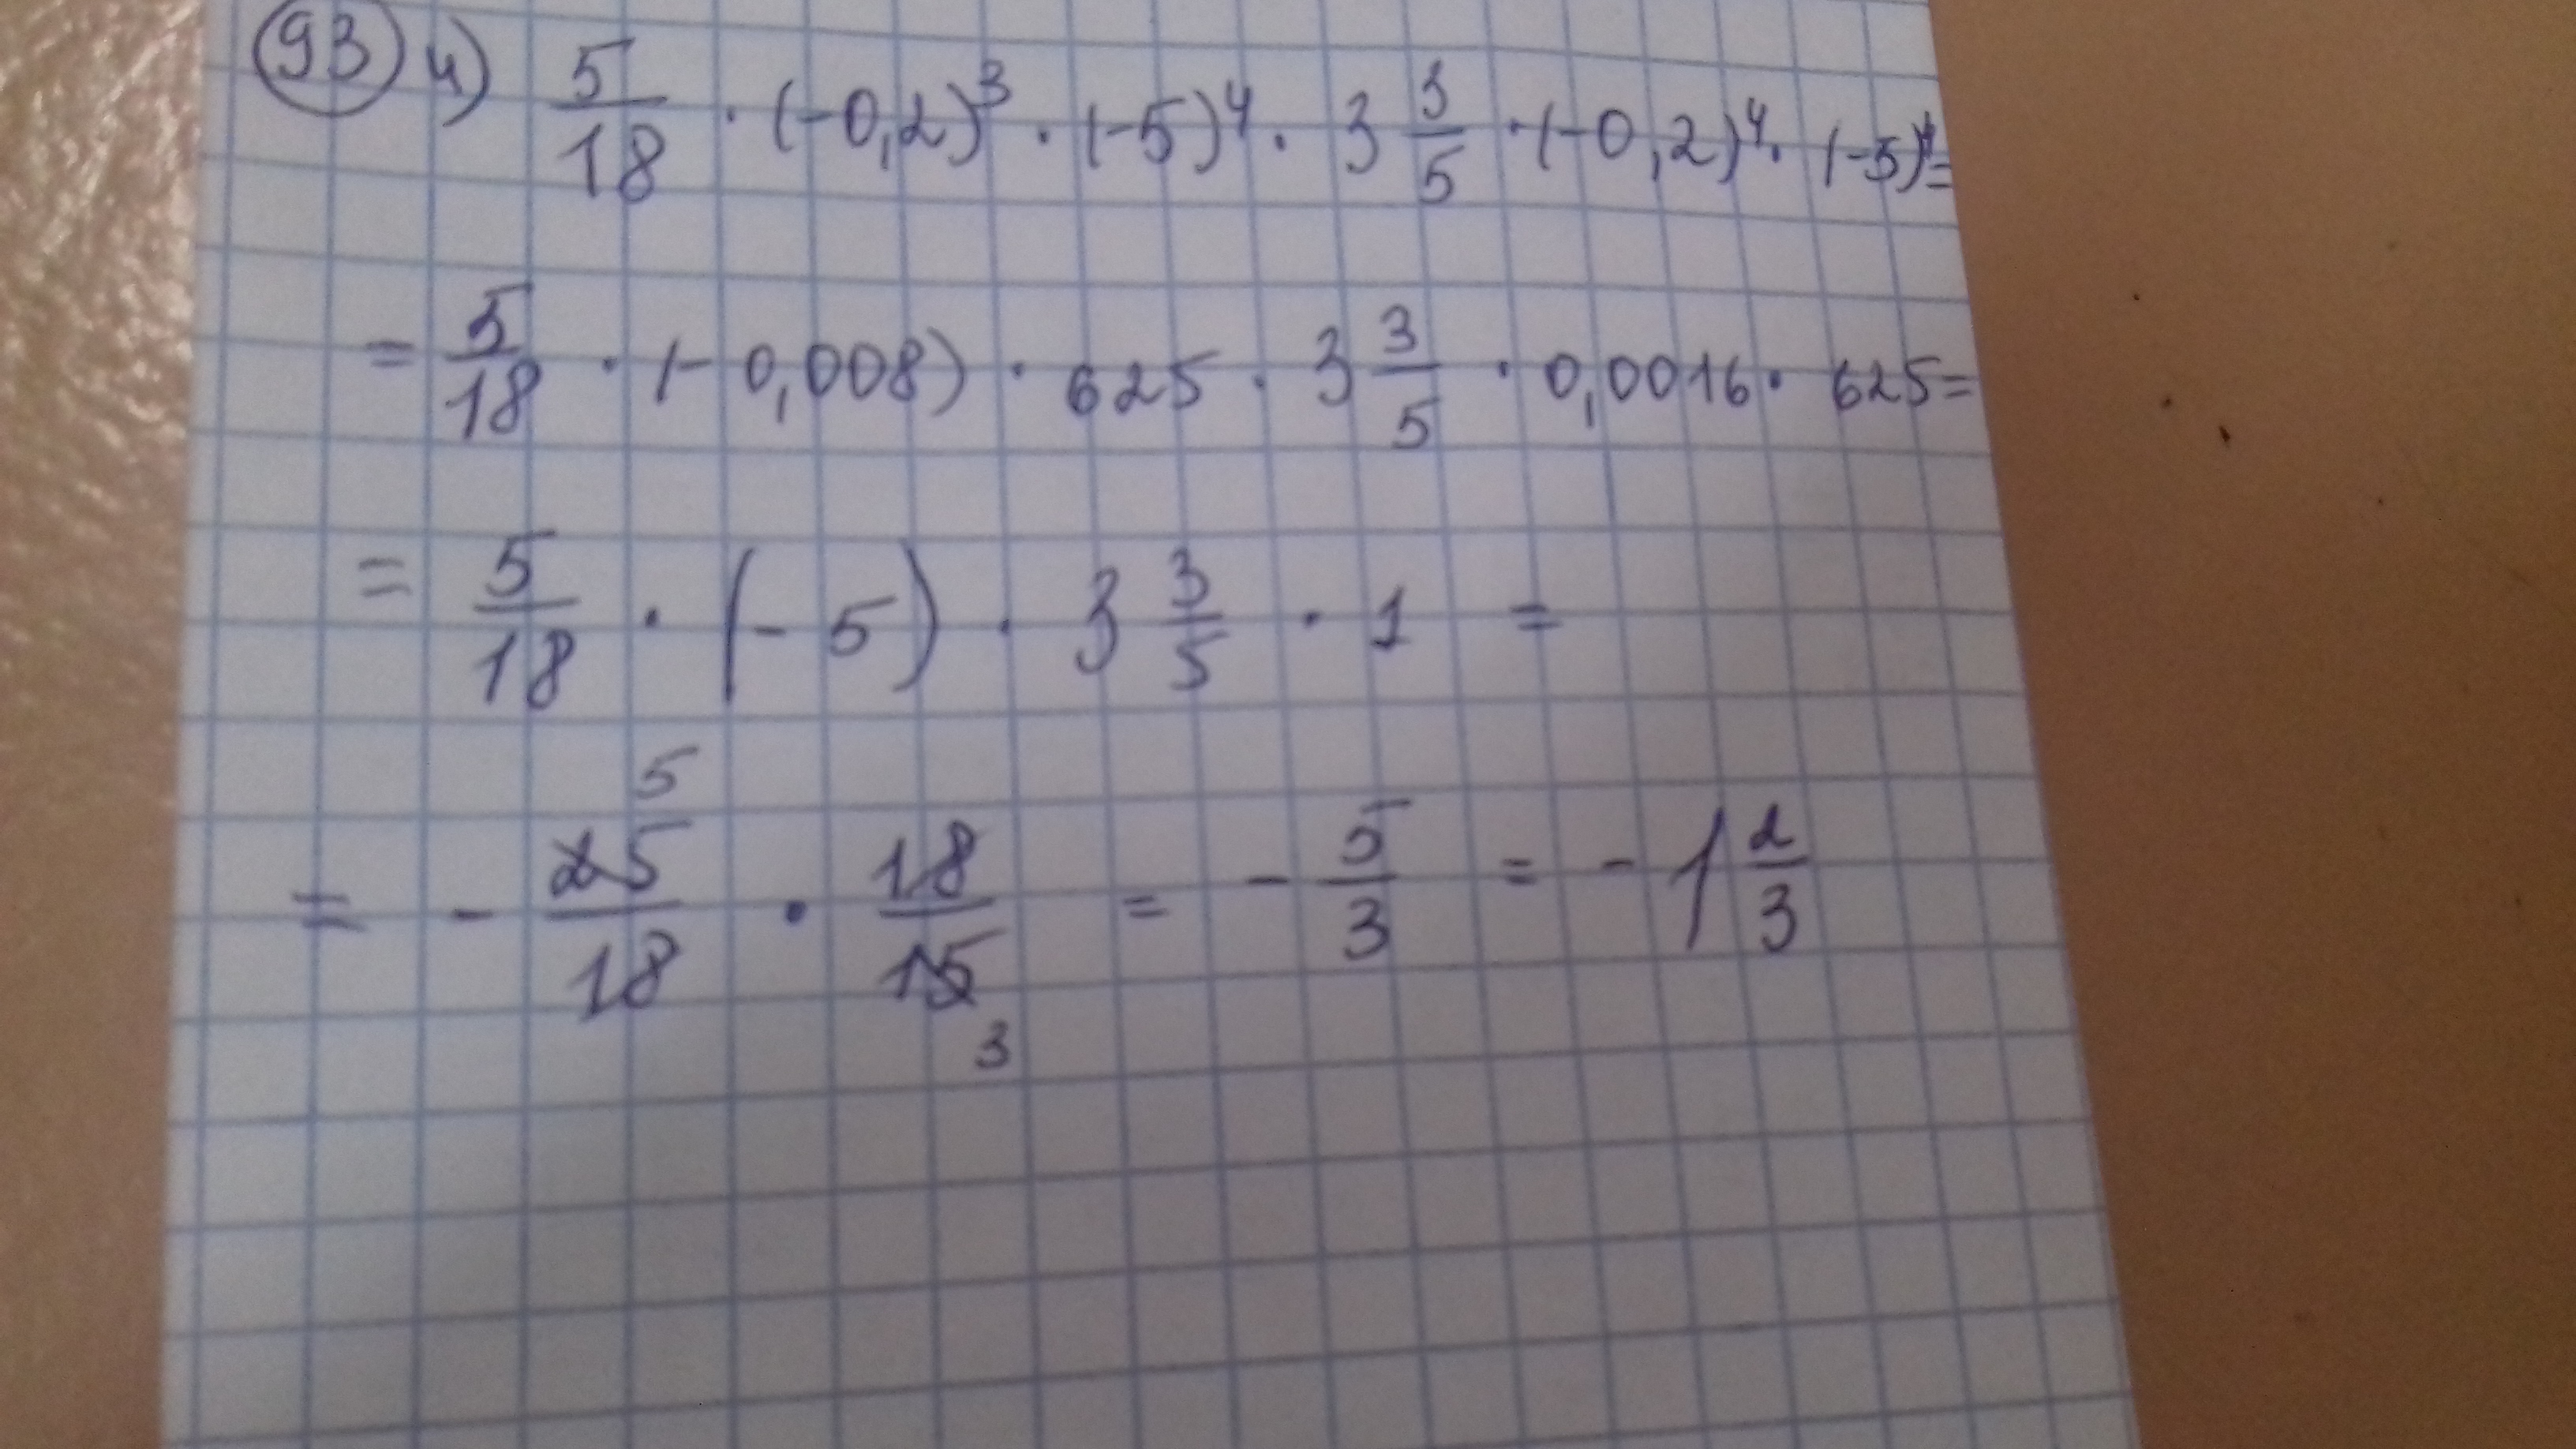 93 4) 5/18 · (-0,2)³ · (-5)⁴ · 3 3/5 · (-0,2)⁴ · (-5)⁴ =
= 5/18 · (-0,008) · 625 · 3 3/5 · 0,0016 · 625 =
= 5/18 · (-5) · 3 3/5 · 1 =
5
= - 25/18 · 18/15 = - 5/3 = - 1 2/3
3